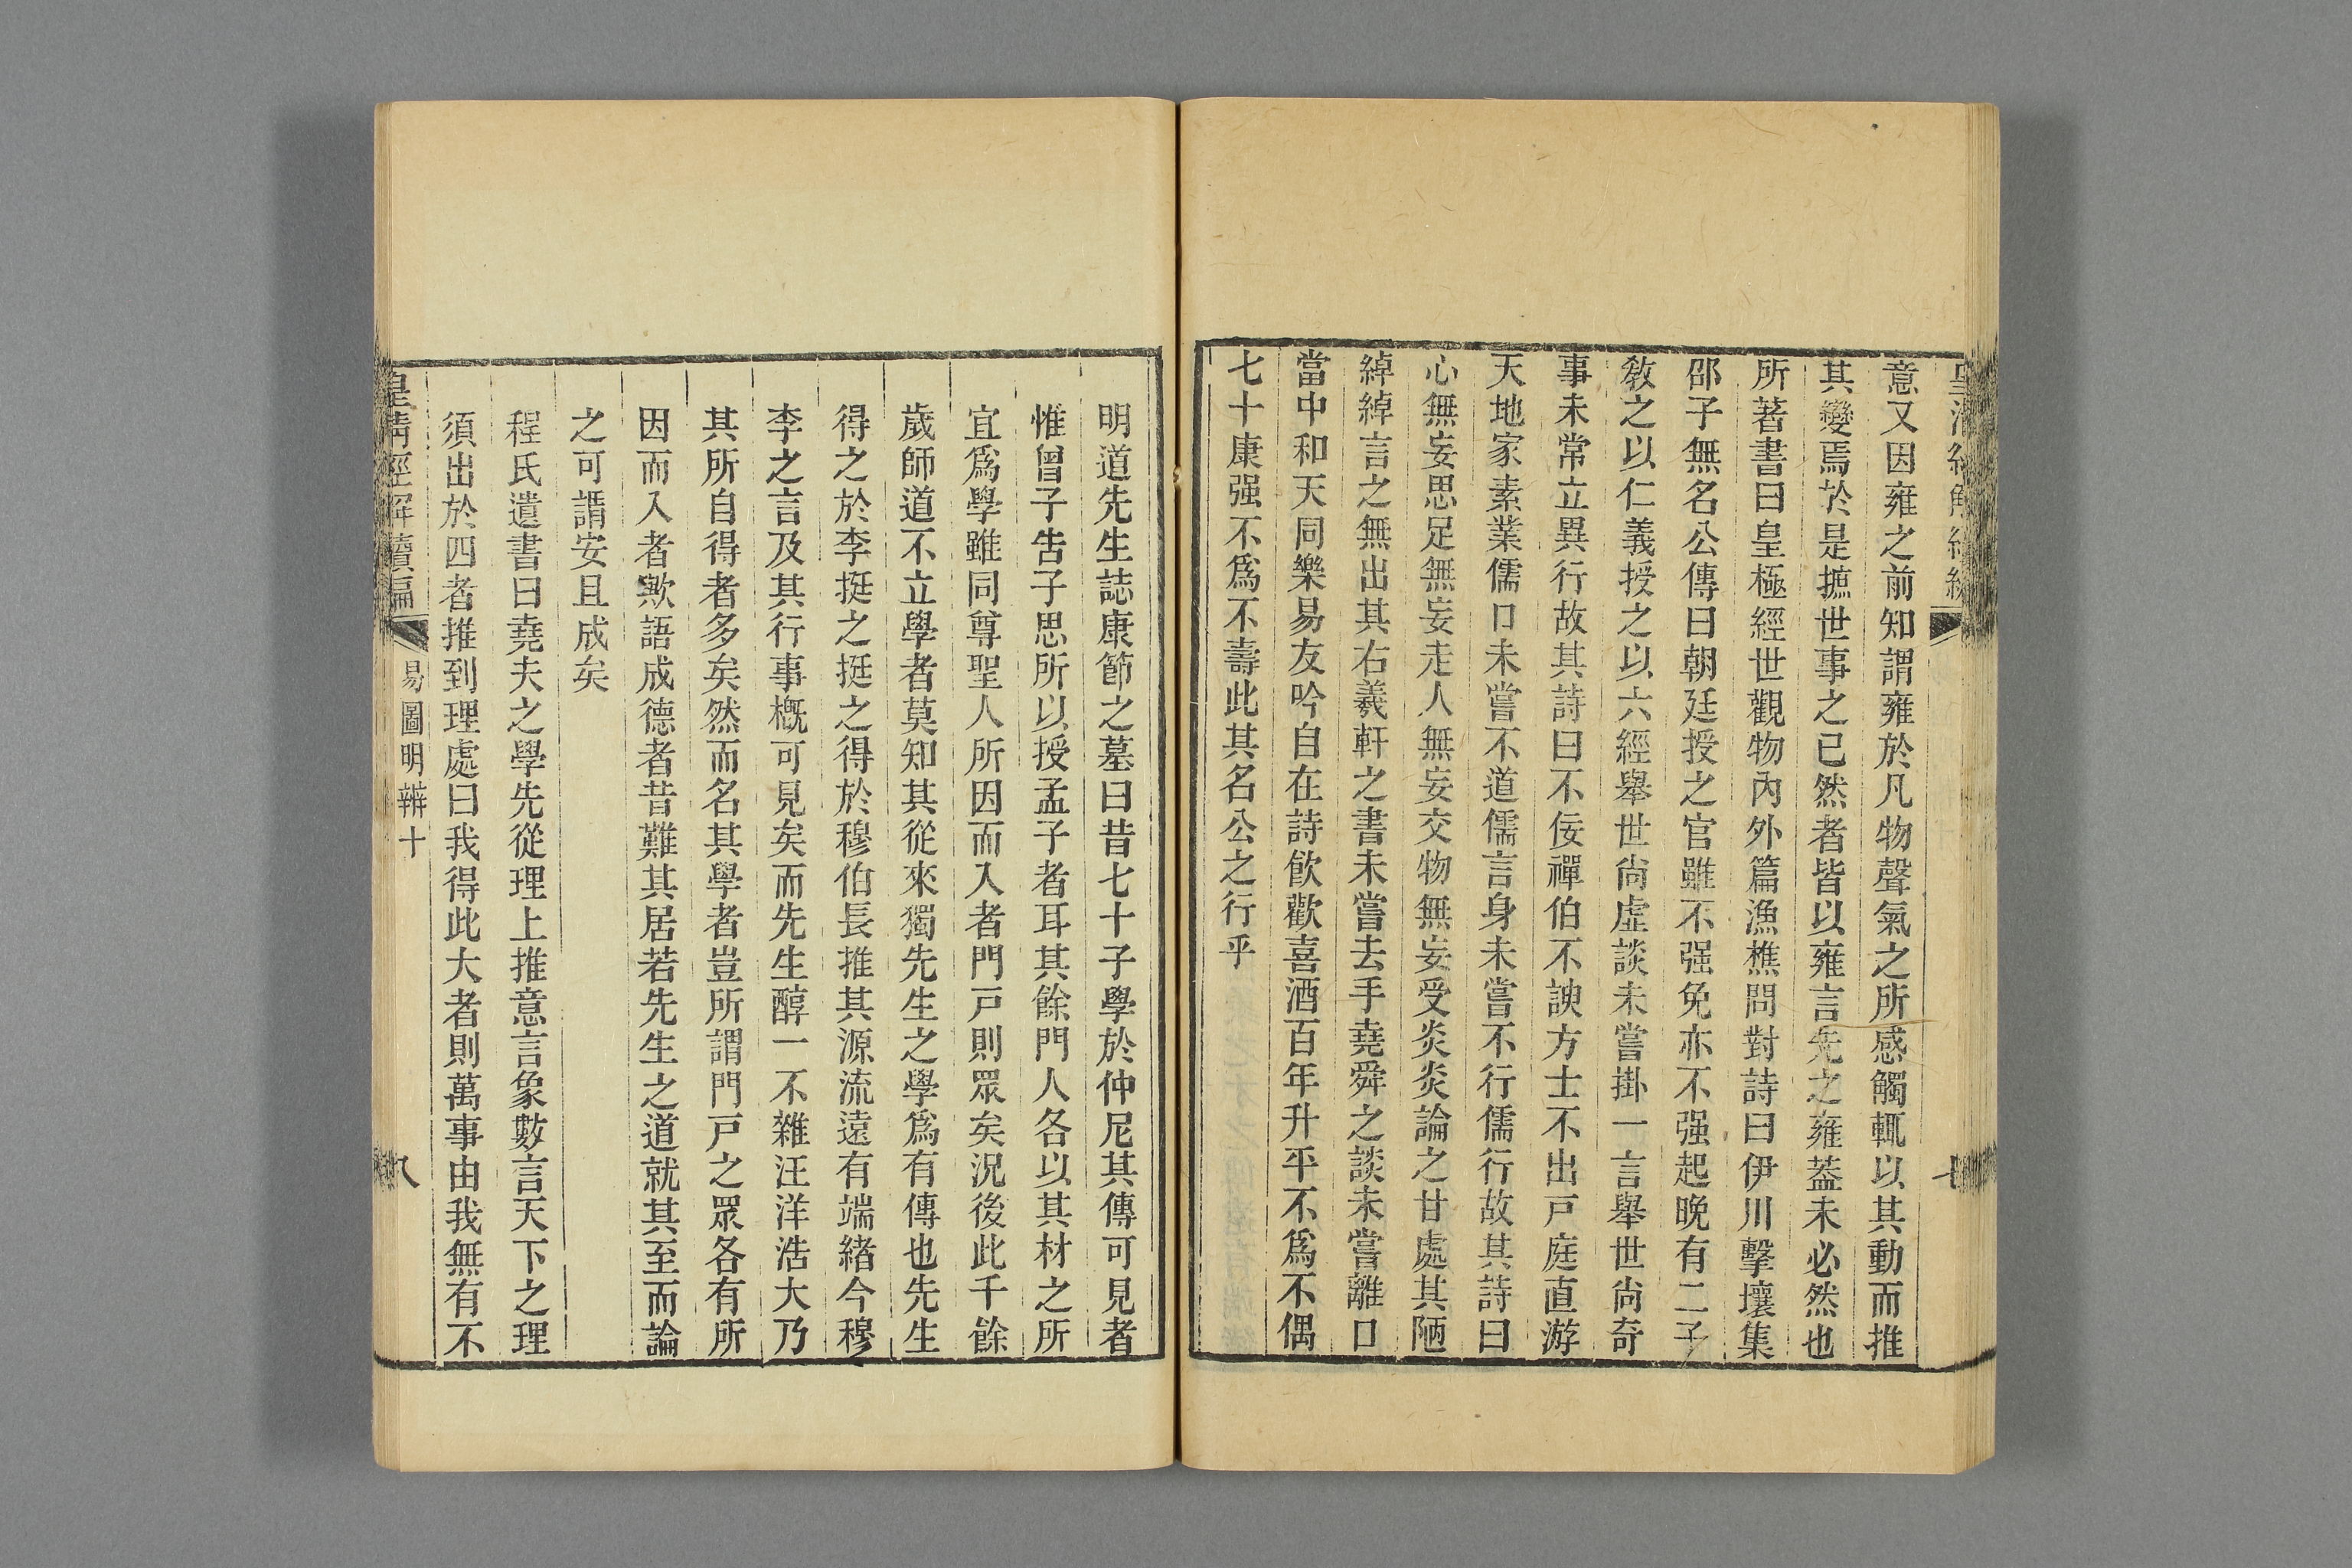 意又因雍之前知謂雍於凡物聲氣之所感觸輒以其動而推
其變焉於是摭世事之已然者皆以雍言先之雍蓋未必然也
所著書曰皇極經世觀物內外篇漁樵問對詩曰伊川擊壤集
邵子無名公傳曰朝廷授之官雖不强免亦不强起晚有二子
敎之以仁義授之以六經舉世尙虛談未嘗掛一言舉世尙奇
事未常立異行故其詩曰不佞禪伯不諛方士不出戸庭直游
天地家素業儒口未嘗不道儒言身未嘗不行儒行故其詩曰
心無妄思足無妄走人無妄交物無妄受炎炎論之甘處其陋
綽綽言之無出其右羲軒之書未嘗去手堯舜之談未嘗離口
當中和天同樂易友吟自在詩飮歡喜酒百年升平不爲不偶
七十康强不爲不壽此其名公之行乎
明道先生誌康節之墓曰昔七十子學於仲尼其傳可見者
惟曾子告子思所以授孟子者耳其餘門人各以其材之所
宜爲學雖同尊聖人所因而入者門戸則眾矣況後此千餘
歲師道不立學者莫知其從來獨先生之學爲有傳也先生
得之於李挺之挺之得於穆伯長推其源流遠有端緒今穆
李之言及其行事槪可見矣而先生醇一不雜汪洋浩大乃
其所自得者多矣然而名其學者豈所謂門戸之眾各有所
因而入者歟語成德者昔難其居若先生之道就其至而論
之可謂安且成矣
程氏遺書曰堯夫之學先從理上推意言象數言天下之理
須出於四者推到理處曰我得此大者則萬事由我無有不
皇淸經解續編
易圖明辨十
八